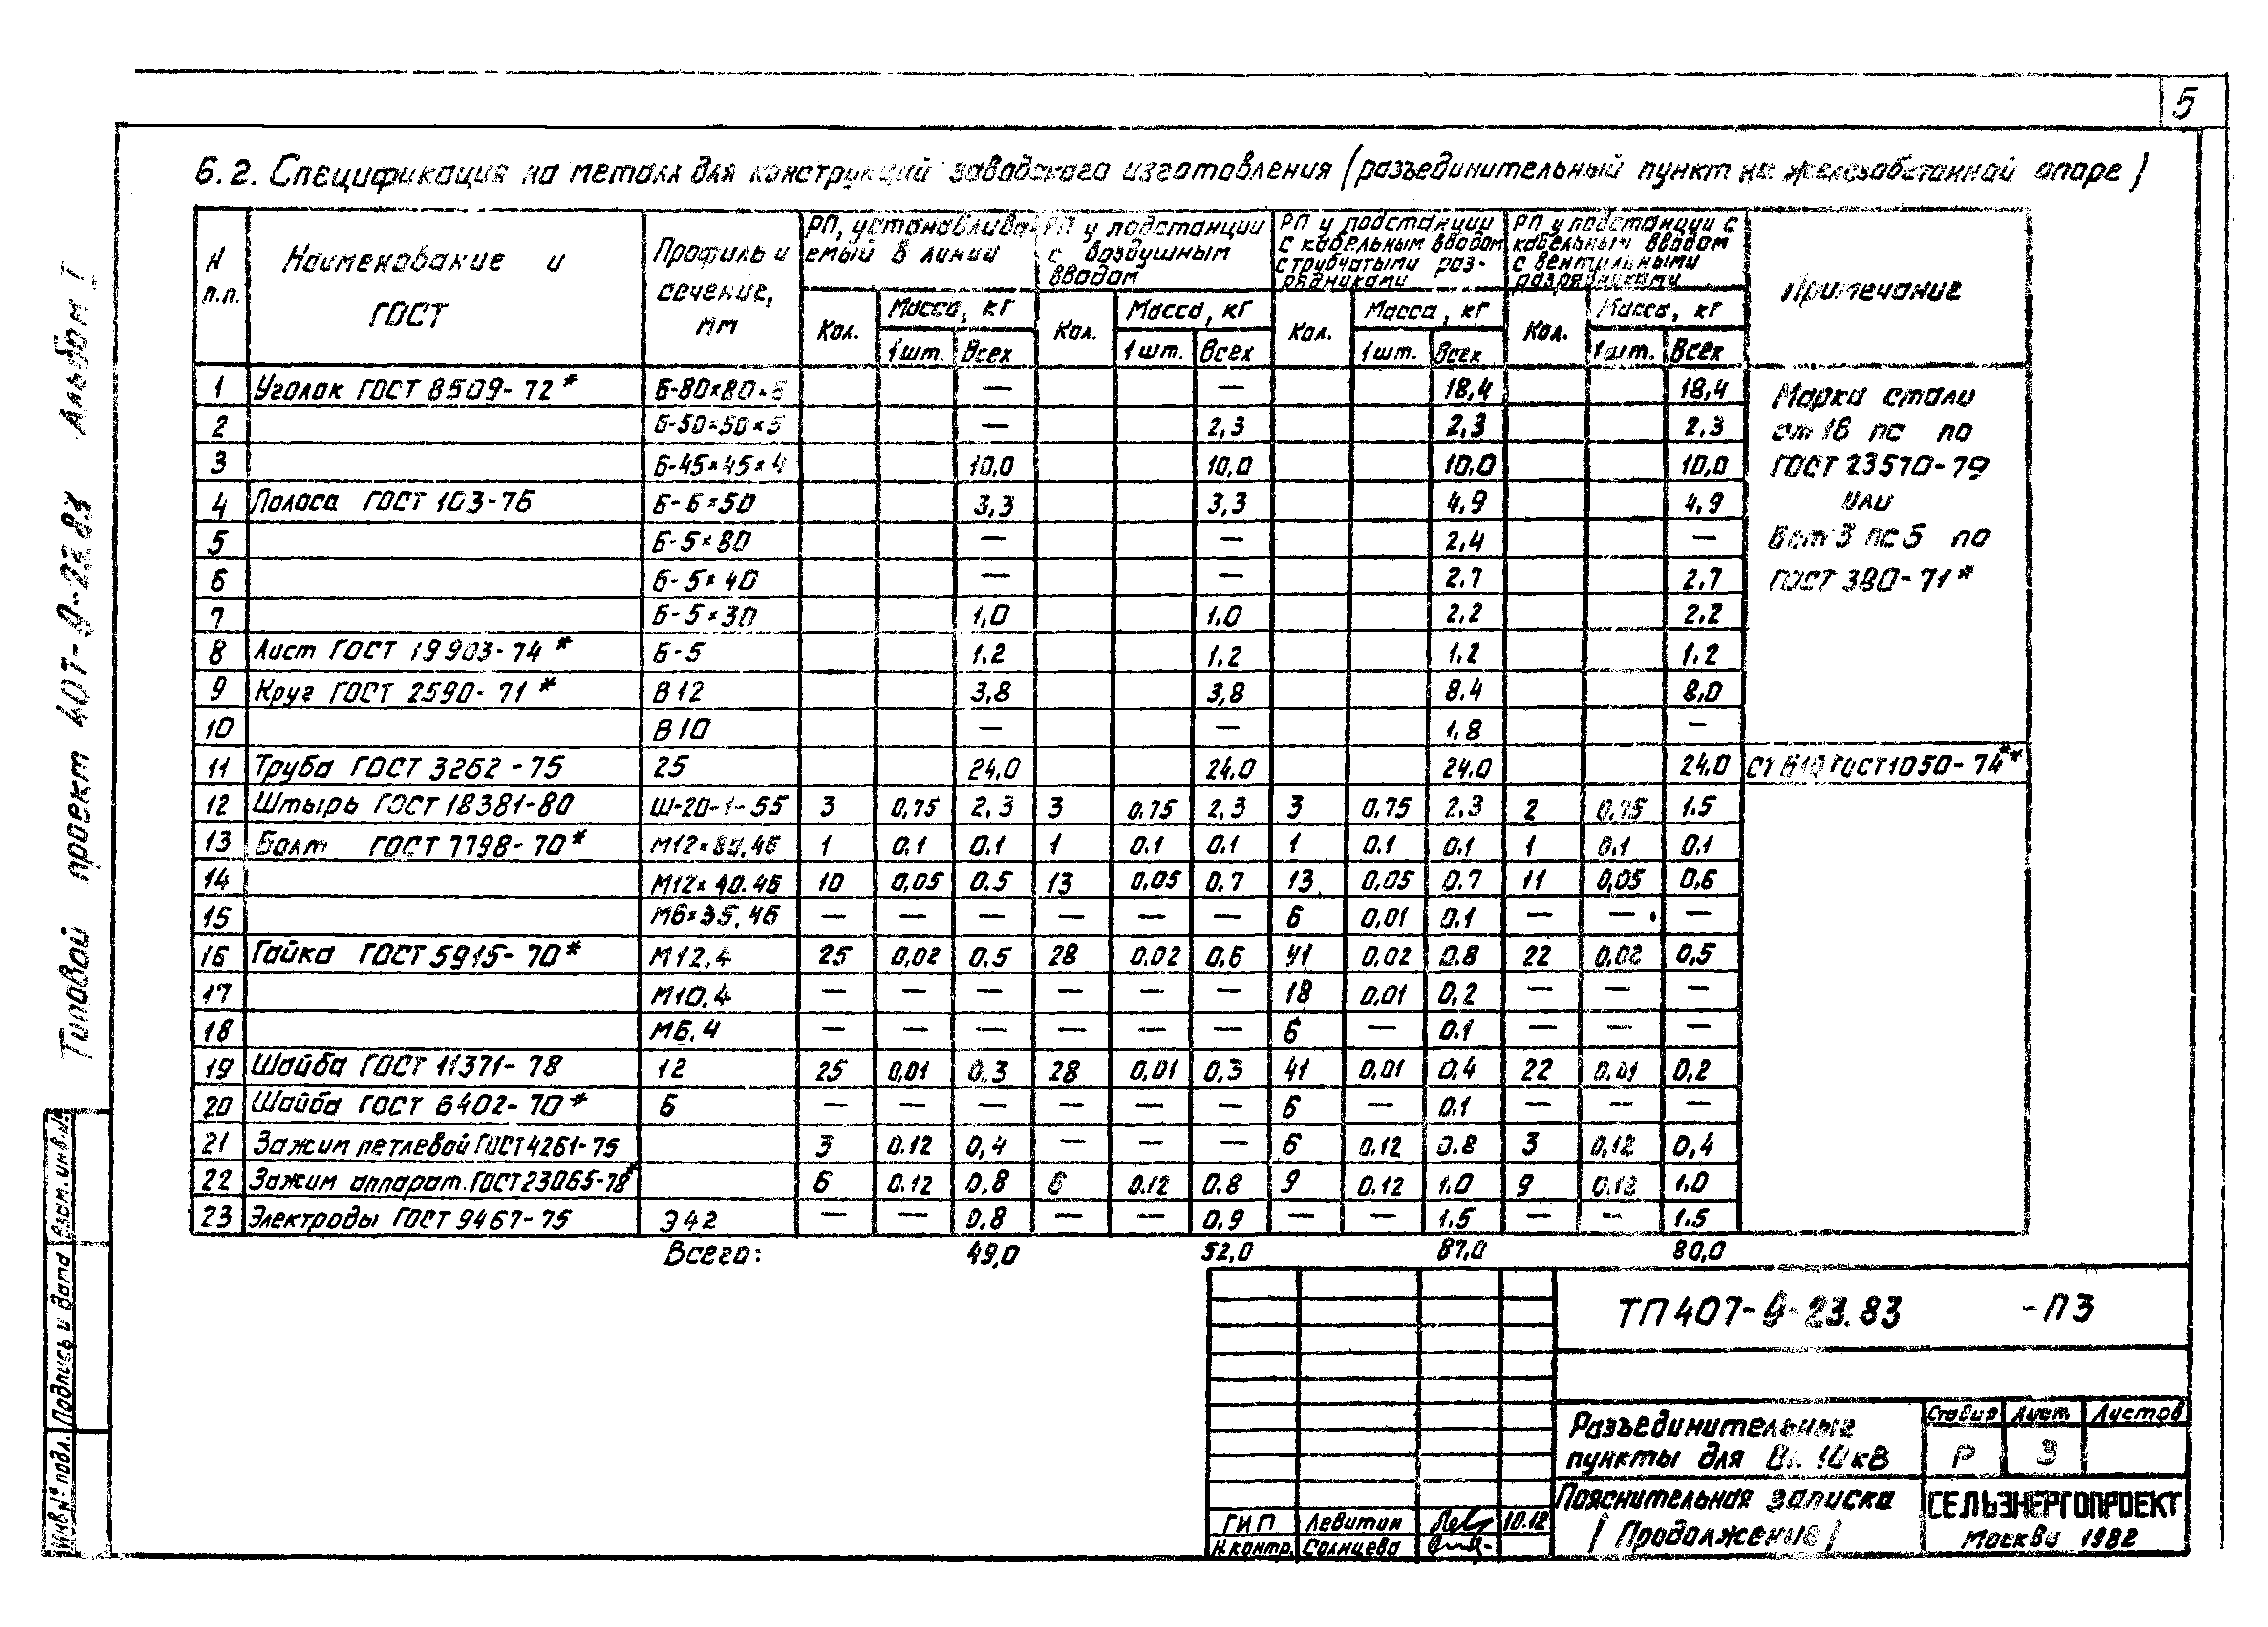 5
6.2. Спецификация на металл для конструкций заводского изготовления (разъединительный пункт на железобетонной опоре)
N п.п. Наименование и ГОСТ Профиль и сечение, мм РП, устанавливаемый в линии РП у подстанции с воздушным вводом РП у подстанции с кабельным вводом с трубчатыми разрядниками РП у подстанции с кабельным вводом с вентильными разрядниками Примечание
Кол. Масса, кг Кол. Масса, кг Кол. Масса, кг Кол. Масса, кг
1шт. Всех 1шт. Всех 1шт. Всех 1шт. Всех
1 Уголок ГОСТ 8509-72* Б-80×80×6 — — 18,4 18,4
2 Б-50×50×5 — 2,3 2,3 2.3
3 Б-45×45×4 10,0 10,0 10,0 10,0
4 Полоса ГОСТ 103-76 Б-6×50 3,3 3,3 4,9 4,9
5 Б-5×80 — — 2,4 —
6 Б-5×40 — — 2.7 2.7
7 Б-5×30 1,0 1,0 2,2 2,2
8 Лист ГОСТ 19903-74* Б-5 1.2 1.2 1.2 1.2
9 Круг ГОСТ 2590-71* В12 3,8 3,8 8.4 8,0
10 В10 — — 1,8 —
Марка стали
ст 18 пс по
ГОСТ 23570-79
или
Вст 3 пс 5 по
ГОСТ 380-71*
11 Труба ГОСТ 3262-75 25 24,0 24,0 24,0 24,0 ГОСТ1050-74**
12 Штырь ГОСТ 18381-80 Ш-20-1-55 3 0,75 2,3 3 0.75 2,3 3 0,75 2,3 2 0,75 1.5
13 Болт ГОСТ 7798-70* М12×80.46 1 0.1 0.1 1 0.1 0.1 1 0.1 0.1 1 0.1 0.1
14 М12×40.46 10 0,05 0.5 13 0,05 0.7 13 0,05 0.7 11 0,05 0,6
15 М6×35.46 — — — — — — 6 0,01 0.1 — — —
16 Гайка ГОСТ 5915-70* М12.4 25 0,02 0.5 28 0.02 0,6 41 0,02 0.8 22 0,02 0,5
17 М10.4 — — — — — — 18 0,01 0,2 — — —
18 М6.4 — — — — — — 6 — 0.1 — — —
19 Шайба ГОСТ 11371-78 12 25 0,01 0.3 28 0,01 0,3 41 0,01 0,4 22 0,01 0,2
20 Шайба ГОСТ 6402-70* 6 — — — — — — 6 — 0.1 — — —
21 Зажим петлевой ГОСТ 4261-75 3 0.12 0,4 — — — 6 0.12 0.8 3 0,12 0,4
22 Зажим аппарат. ГОСТ 23065-78* 6 0.12 0,8 6 0.12 0.8 9 0.12 1.0 9 0.12 1.0
23 Электроды ГОСТ 9467-75 Э42 — — 0.8 — — 0.9 — — 1.5 — — 1.5
Всего: 49,0 52,0 87,0 80,0
ТП 407-9-23.83 -ПЗ
Разъединительные
пункты для ВЛ 10кВ
Стадия Лист Листов
Р 3
Пояснительная записка
(Продолжение)
СЕЛЬЭНЕРГОПРОЕКТ
Москва 1982
ГИП Левитин 10.12
Н.контр. Солнцева
Типовой проект 407-9-23.83 Альбом I
Инв.N° подл. Подпись и дата Взам.инв.N°